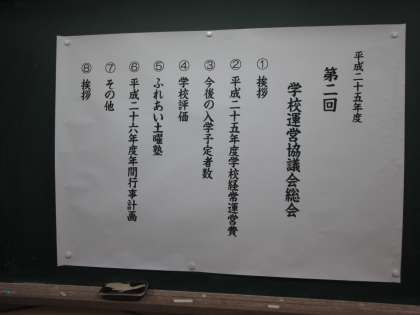 平成二十五年度
第二回
学校運営協議会総会
① 挨拶
② 平成二十五年度学校経常運営費
③ 今後の入学予定者数
④ 学校評価
⑤ ふれあい土曜塾
⑥ 平成二十六年度年間行事計画
⑦ その他
⑧ 挨拶